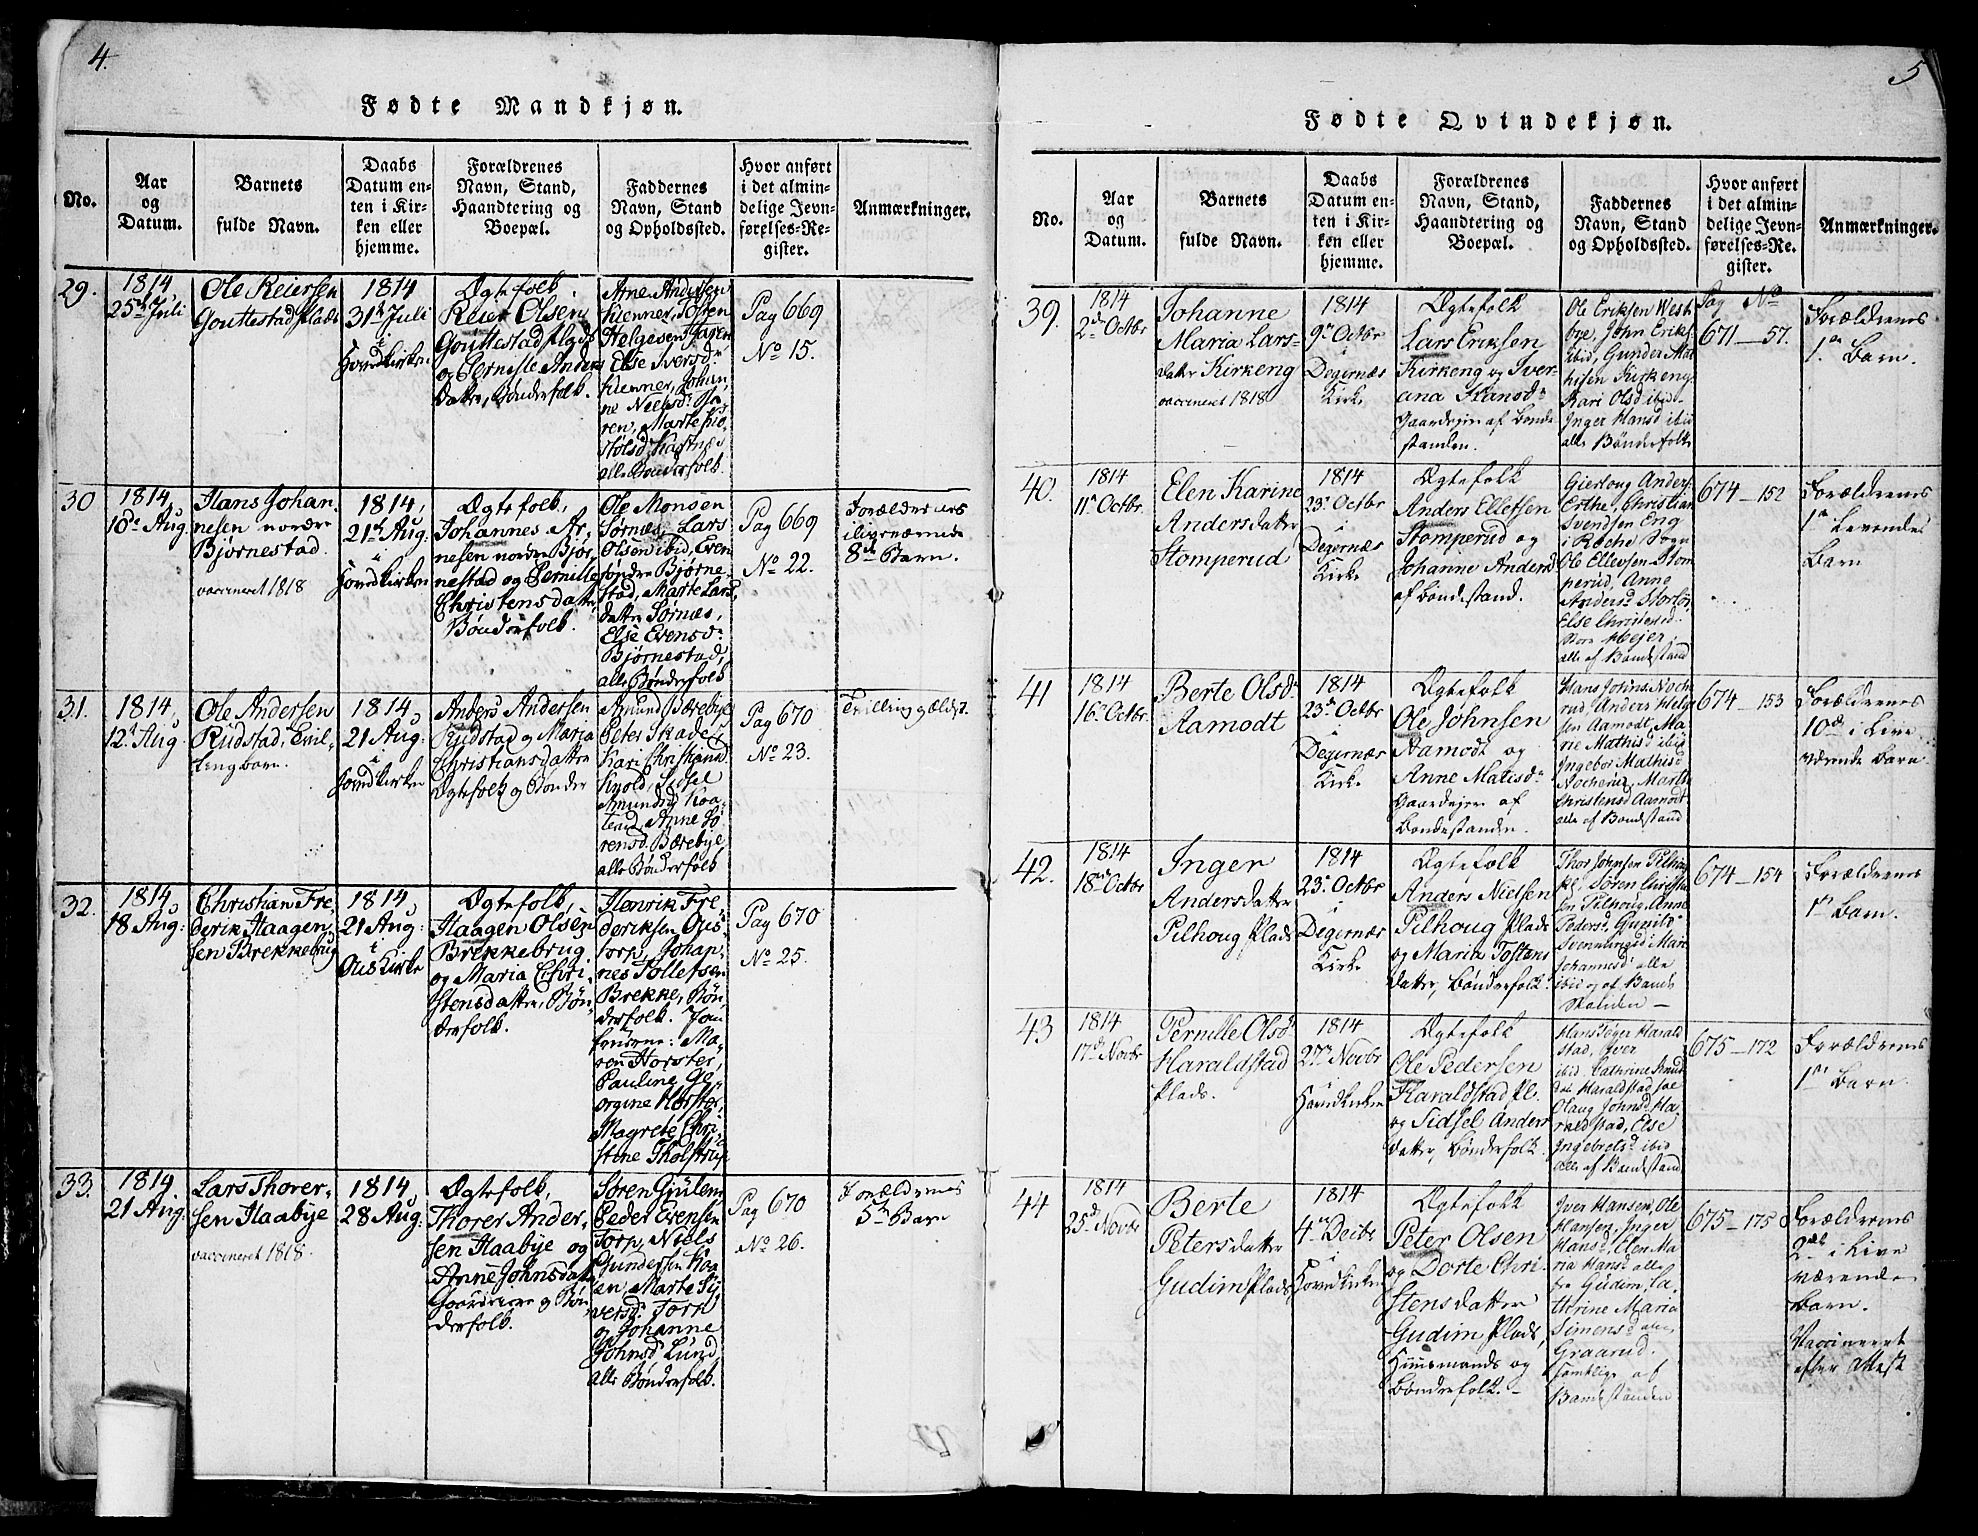 4.
Fødte Mandkjøn.
No.
Aar
og
Datum.
Barnets
fulde Navn.
Daabs
Datum en-
ten i Kir-
ken eller
hjemme.
Forældrenes
Navn, Stand,
Haandtering og
Boepæl.
Faddernes
Navn, Stand
og Opholdssted.
Hvor anført
i det almin-
delige Jevn-
førelses-Re-
gister.
Anmærkninger.
29.
1814
25de Juli
Ole Reiersen
Gouttestad Plads
1814
31te Juli
i
Hovedkirken
Ægtefolk,
Reier Olsen
Gouttestad plads
og Pernille Anders
datter, Bønderfolk.
Arne Andersen
Hienner, Tosten
Helgesen
Else Iversd:
Hienner, Johan,
ne Nielsd:
ren, Marte
alle Bønderfolk
Pag 669
No 15.
30
1814,
10de Aug
Hans Johan,
nesen nordre
Bjørnestad
vaccineret 1818
1814,
21de Aug:
i
Hovedkirken
Ægtefolk,
Johannes Ar,
nesen nordre Bjør,
nestad og Pernille
Christensdatter,
Bønderfolk.
Ole Monsen
Sørnæs, Lars
Olsen ibid, Even
søndre Bjørne,
stad, Marte Lars,
datter Sørnæs,
Else Evensd:
Bjørnestad,
alle Bønderfolk
Pag 669
No 22.
Forældrenes
ilivværende
8de Barn.
31.
1814,
12te Aug:
Ole Andersen
Rudstad, Tvil,
lingbarn.
1814,
21 Aug:
i
Hovedkirken
Anders Andersen
Rudstad og Maria
Christiansdatter
Ægtefolk og Bønder
Amund Bærebye
Peter Skade,
Kari Christiansd
Kvold, Sidsel
Amundsd
Anne Sø,
rensd. Bærebye
alle Bønderfolk
Pag 670
No 23.
Tvilling ældst.
32.
1814,
18 Aug:
Christian Fre,
derik Haagen,
sen Brekkebrug
1814,
21 Aug:
i
Ous Kirke
Ægtefolk,
Haagen Olsen
Brekkebrug
og Maria Chri,
stensdatter, Bøn,
derfolk.
Henrik Fre,
deriksen Ous,
torp, Johan,
nes Tollefsen
Brekke, Bøn,
derfolk. Jom
fruerne: Ma,
ren Horster,
Pauline Ge,
orgine Horster,
Magrete Chri,
stine Tholstrup
Pag 670
No 25.
33.
1814.
21 Aug:
Lars Thorer,
sen Haabye
vaccineret 1818.
1814
28 Aug:
Ægtefolk,
Thorer Ander,
sen Haabye og
Anne Johnsdatter
Gaardeiere og Bøn
derfolk.
Søren Gjulem
Peder Evensen
Torp, Niels
Gundersen Haa,
en, Marte Si,
versd. Torp
og Johanne
Johnsd Lund
alle Bønderfolk.
Pag 670
No 26.
Forældrenes
5te Barn
5
Fødte Qvindekjøn.
No.
Aar
og
Datum.
Barnets
fulde Navn.
Daabs
Datum en-
ten i Kir-
ken eller
hjemme.
Forældrenes
Navn, Stand,
Haandtering og
Boepæl.
Faddernes
Navn, Stand
og Opholdssted.
Hvor anført
i det almin-
delige Jevn-
førelses-Re-
gister.
Anmærkninger.
39.
1814
2de Octbr
Johanne
Maria Lars-
datter Kirkeng
vaccineret 1818
1814
9de Octbr
i
Degernæs
Kirke
Ægtefolk
Lars Eriksen
Kirkeng og Iver-
ana Hansd:
Gaardejere af Bonde
standen.
Ole Eriksen West
bye, John Eriks
ibid, Gunder Mat
hisen Kirkeng
Kari Olsd ibid
Inger Hansd ibid
alle Bønderfolk
Pag No
671 — 57.
Forældrenes
1te Barn.
40.
1814
11te Octbr.
Elen Karine
Andersdatter
Stomperud
1814
23de Octbr
i
Degernæs
Kirke
Ægtefolk
Anders Ellefsen
Stomperud og
Johanne Andersd
af Bondestand.
Gierloug Anders
Erthe, Christian
Svendsen Eng
i Rachestad Sogn
Ole Ellevsen Stom
perud, Anne
Andersd
Else Christensd
alle af Bondestand
674 — 152
Forældrenes
1te Levende
Barn
41
1814
16de Octbr.
Berte Olsd:
Aamodt
1814
23de Octbr
i
Degernæs
Kirke
Ægtefolk
Ole Johnsen
Aamodt og
Anne Matisd:
Gaardejere af
Bondestanden.
rud Anders Helge
sen Aamodt, Ma
rie Mathisd ibid
Ingebor Mathisd
Christensd Aamodt
alle af Bondestand
674 — 153
Forældrenes
10de i Live
værende Barn
42.
1814
18de Octbr
Inger
Andersdatter
Pilhoug Plads
1814
23de Octbr
i
Degernæs
Kirke
Ægtefolk
Anders Nielsen
Pilhoug Plads
og Maria Tostens
datter, Bønderfolk.
Thor Johnsen Pilhoug
Pl, Søren Christia
sen Pilhoug, Anne
Pedersd, Gunild
Svenningsd i Mari
Johannesd alle
ibid og af Bonde
standen —
674 — 154
Forældrenes
1te Barn.
43
1814
17de Novbr
Pernille Olsd:
Haraldstad
Plads.
1814
27de Novbr
i
Hovedkirken
Ægtefolk
Ole Pedersen
Haraldstad Pl.
og Sidsel Anders
datter, Bønderfolk.
Hans Harald
stad, Iver
ibid. Cathrine Knud
datt Haraldstad
Olaug Johnsd Ha,
raldstad, Else
Ingebretsd ibid
alle af Bondestand
675 — 172
Forældrenes
1te Barn.
44
1814
25de Novbr
Berte
Petersdatter
Gudim Plads
1814
4de Decbr
i
Hovedkirken
Ægtefolk
Peter Olsen
og Dorte Chri-
stensdatter
Gudim Plads,
Huusmands og
Bønderfolk. -
Iver Hansen, Ole
Hansen, Inger
Hansd, Elen Ma
ria Hansd alle
fra Gudim, Ca
thrine Maria
Simensd
Graarud.
samtlige af
Bondestanden
675 — 175
Forældrenes
2det i Live
værende
Barn.
Vaccineret
efter Attest